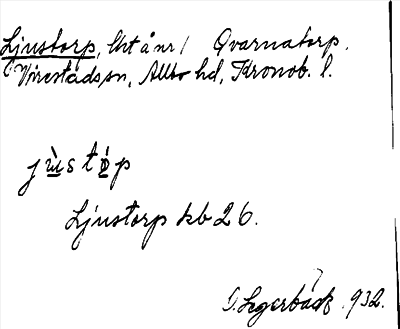 Ljustorp, lht å nr 1 Qvarnatorp.
Virestads sn, Allbo hd, Kronob. l.
jùstòp
Ljustorp kb 26.
Segerbäck. 932.